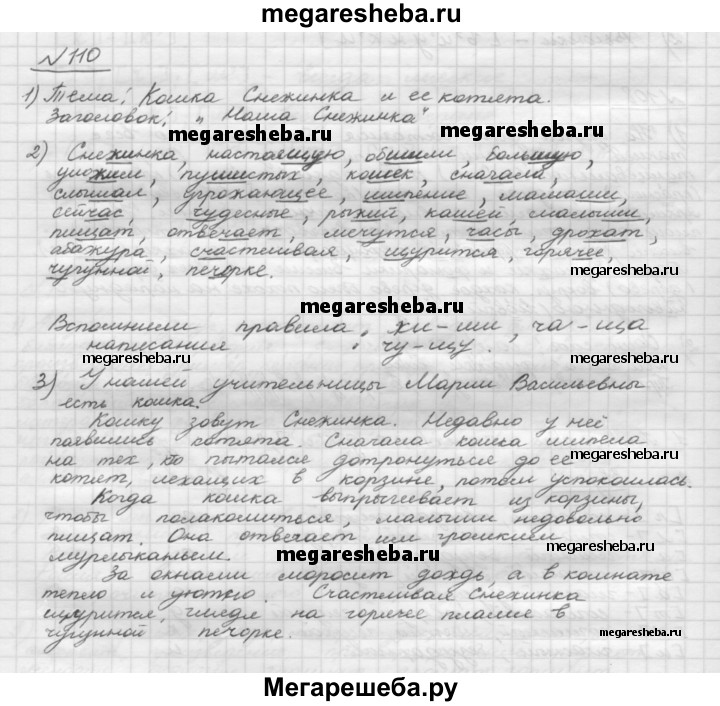 megaresheba.ru
№110
1) Тема: Кошка Снежинка и ее котята.
Заголовок: "Наша Снежинка"
megaresheba.ru
megaresheba.ru
2) Снежинка, настоящую, обшили, большую,
уложим, пушистых, кошек, сначала,
слышал, угрожающее, шипение, мамаши,
сейчас, чудесные, рыжий, кашей, малыши,
пищат, отвечает, мечутся, часы, дрожат,
абажура, счастливая, щурится, горячее,
чугунной, печорке.
megaresheba.ru
megaresheba.ru
Вспомнили правила: жи-ши, ча-ща
написания чу-щу.
megaresheba.ru
megaresheba.ru
3) У нашей учительницы Марии Васильевны
есть кошка.
Кошку зовут Снежинка. Недавно у неё
появились котята. Сначала кошка шипела
на тех, кто пытался дотронуться до ее
котят, лежащих в корзине, потом успокоилась.
megaresheba.ru
Когда кошка выпрыгивает из корзины,
чтобы полакомиться, малыши недовольно
пищат. Она отвечает им громким
мурлыканьем.
megaresheba.ru
megaresheba.ru
За окнами моросит дождь, а в комнате
тепло и уютно. Счастливая Снежинка
щурится, глядя на горячее пламя в
чугунной печорке.
megaresheba.ru
Мегарешеба.ру